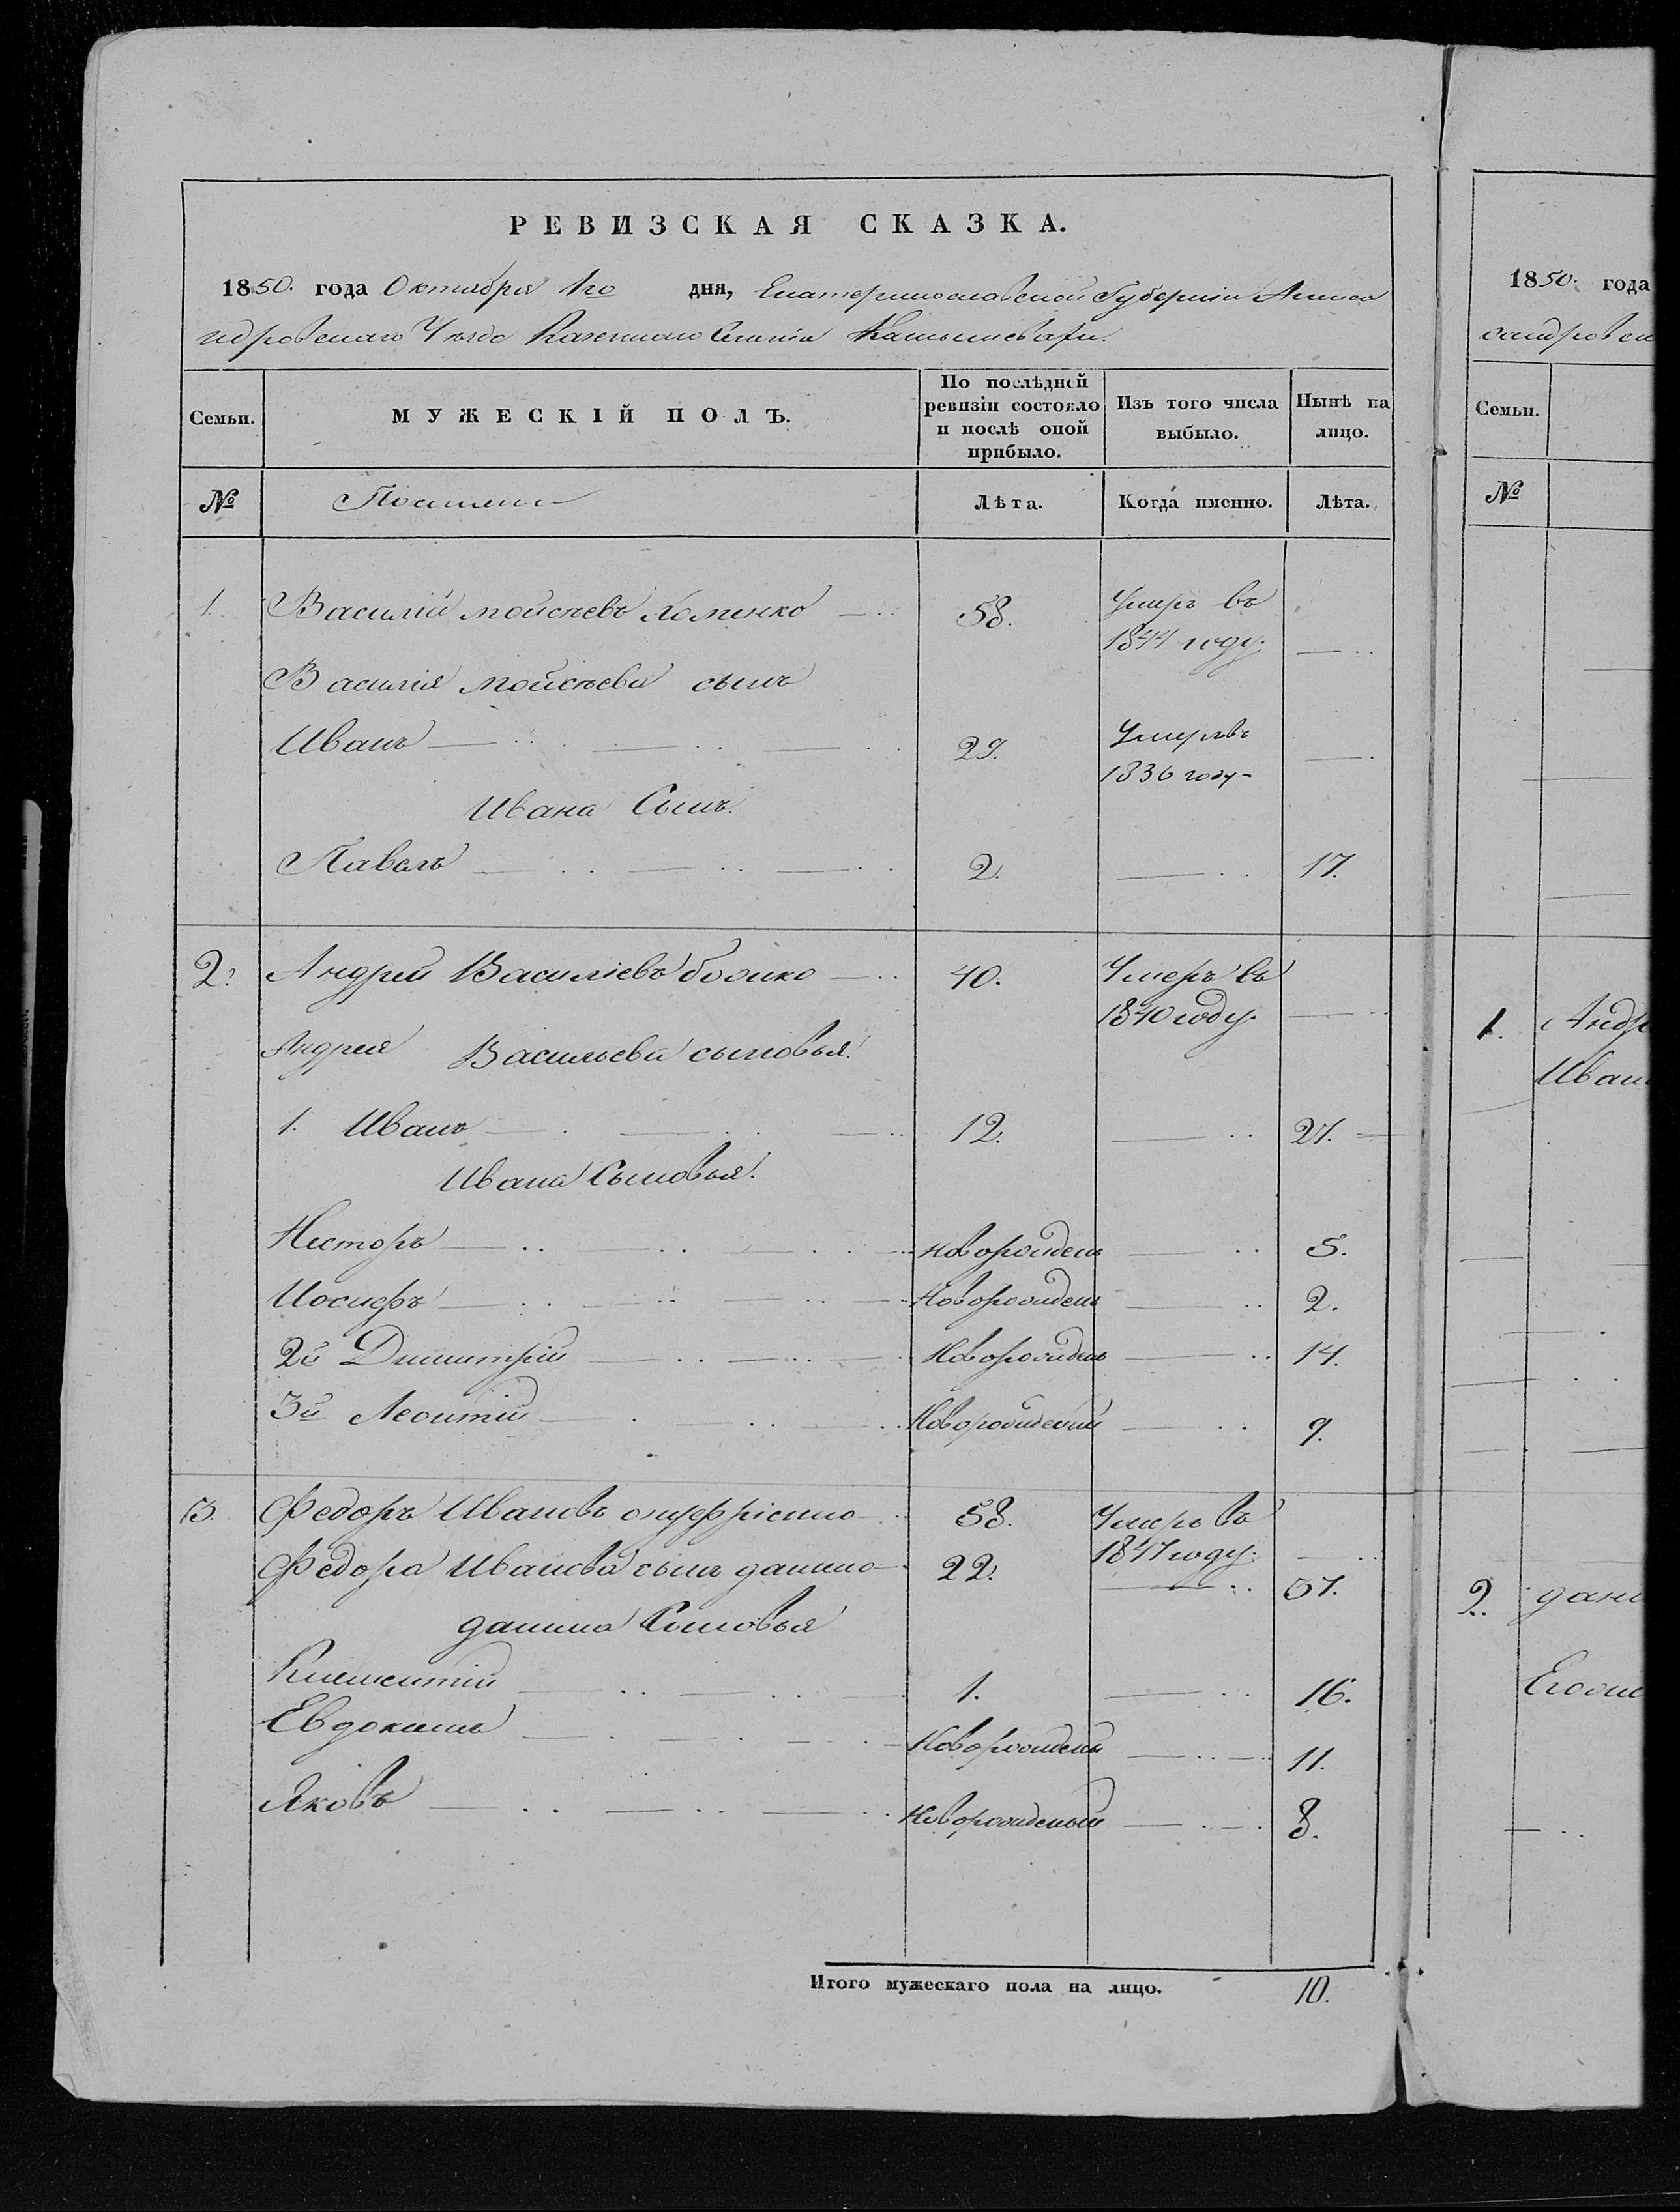 РЕВИЗСКАЯ СКАЗКА.
1850. года Октября 1го дня, Екатеринославской Губерніи Алекса
ндровскаго Уезда Казеннаго Селенія
Семьи.
МУЖЕСКІЙ ПОЛЪ.
По послѣдней ревизіи состояло и послѣ оной прибыло.
Изъ того числа выбыло.
Нынѣ на лицо.
№
Лѣта.
Когда именно.
Лѣта.
1. Василій Мойсѣевъ Хоменко 58. Умеръ въ 1844 году.
Василія Мойсѣева сынъ
Иванъ 29. Умеръ въ 1836 году
Ивана Сынъ
Павелъ 2. 17.
2. Андрей Василіевъ бойко 40. Умеръ въ 1840 году.
Андрея Васильева сыновья
1. Иванъ 12. 27.
Ивана Сыновья
Несторъ новорожден 5.
Иосифъ Новорожден 2.
2й Димитрій Новорожден 14.
3й Леонтій Новорожденый 9.
3. Федоръ Ивановъ онуфріенко 58. Умеръ въ 1847 году.
Федора Иванова сынъ данило 22. 37.
данила Сыновья
Климентій 1. 16.
Евдокимъ Новорожденый 11.
Яковъ Новорожденый 8.
Итого мужескаго пола на лицо. 10.
1850. года
сандровск
Семьи.
№
1. Андр
Иван
2. дани